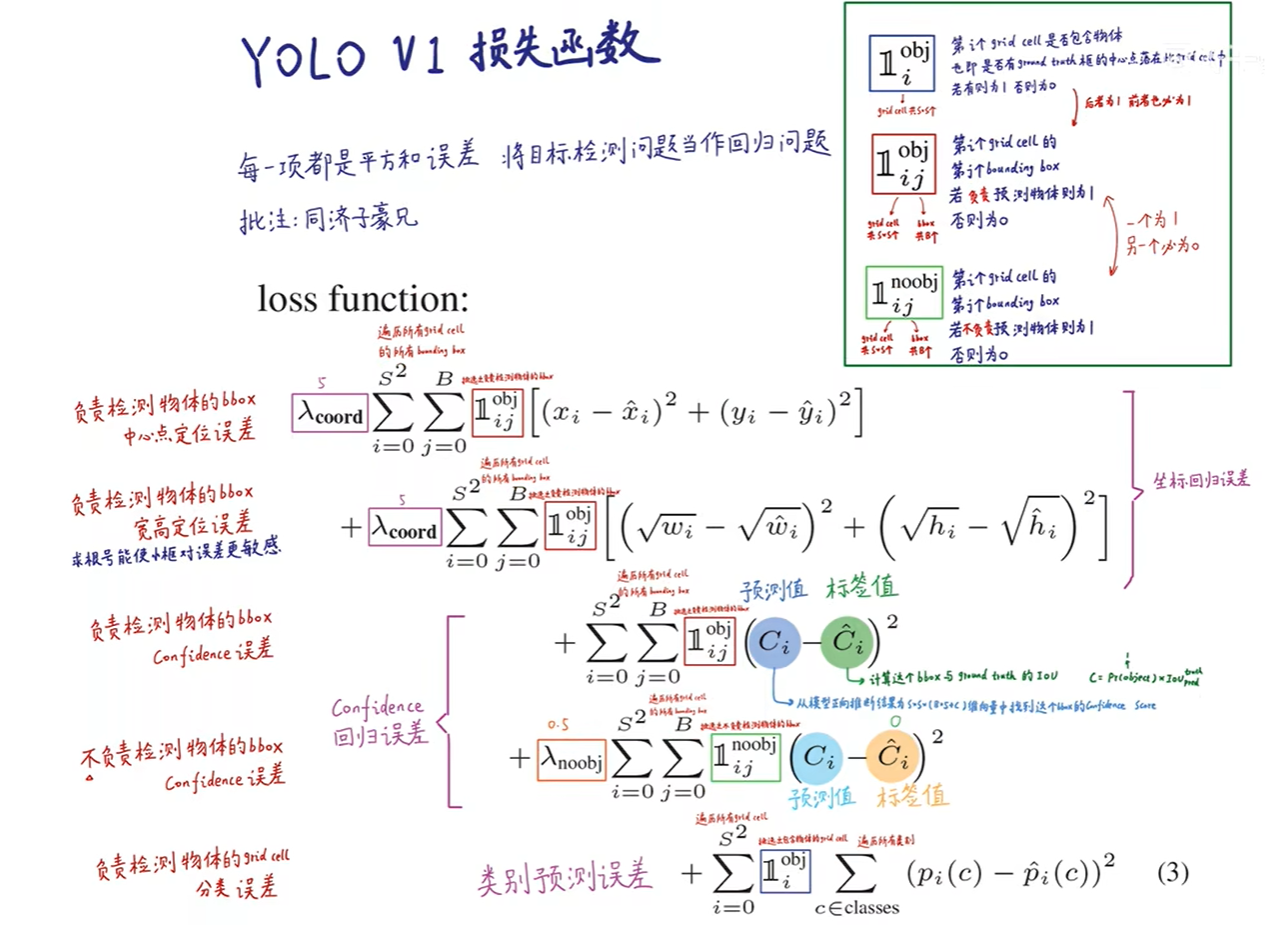 YOLO V1 损失函数
每一项都是平方和误差 将目标检测问题当作回归问题
批注:同济子豪兄
𝟙 obj i
grid cell 共S*S个
第i个grid cell是否包含物体
也即是否有ground truth框的中心点落在此grid cell中
若有则为1 否则为0
后者为1 前者也必为1
𝟙 obj ij
grid cell 共S*S个
bbox 共B个
第i个grid cell的
第j个bounding box
若负责预测物体则为1
否则为0
一个为1
另一个必为0
𝟙 noobj ij
grid cell 共S*S个
bbox 共B个
第i个grid cell的
第j个bounding box
若不负责预测物体则为1
否则为0
loss function:
遍历所有grid cell
的所有bounding box
负责检测物体的bbox
中心点定位误差
5
λcoord ∑_{i=0}^{S^2} ∑_{j=0}^{B} 𝟙_{ij}^{obj} [(x_i − x̂_i)^2 + (y_i − ŷ_i)^2]
挑选出负责检测物体的bbox
遍历所有grid cell
的所有bounding box
负责检测物体的bbox
宽高定位误差
求根号能使小框对误差更敏感
5
+ λcoord ∑_{i=0}^{S^2} ∑_{j=0}^{B} 𝟙_{ij}^{obj} [(√w_i − √ŵ_i)^2 + (√h_i − √ĥ_i)^2]
挑选出负责检测物体的bbox
坐标回归误差
遍历所有grid cell
的所有bounding box
预测值 标签值
负责检测物体的bbox
Confidence 误差
+ ∑_{i=0}^{S^2} ∑_{j=0}^{B} 𝟙_{ij}^{obj} (C_i − Ĉ_i)^2
挑选出负责检测物体的bbox
计算这个bbox与ground truth的IOU
C = Pr(object) × IOU truth pred
从模型正向推断结果为S*S*(B*5+C)维向量中找到这个bbox的Confidence Score
Confidence
回归误差
遍历所有grid cell
的所有bounding box
不负责检测物体的bbox
Confidence 误差
0.5
+ λnoobj ∑_{i=0}^{S^2} ∑_{j=0}^{B} 𝟙_{ij}^{noobj} (C_i − Ĉ_i)^2
挑选出不负责检测物体的bbox
0
预测值 标签值
遍历所有grid cell
挑选出包含物体的grid cell 遍历所有类别
负责检测物体的grid cell
分类误差
类别预测误差
+ ∑_{i=0}^{S^2} 𝟙_{i}^{obj} ∑_{c∈classes} (p_i(c) − p̂_i(c))^2 (3)